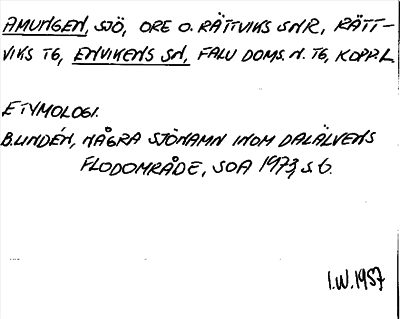 AMUNGEN, SJÖ, ORE O. RÄTTVIKS SNR, RÄTT-
VIKS TG, ENVIKENS SN, FALU DOMS. N. TG, KOPP.L.
ETYMOLOGI.
B. LINDÉN, NÅGRA SJÖNAMN INOM DALÄLVENS
FLODOMRÅDE, SOA 1973, S. 6.
I.W. 1957